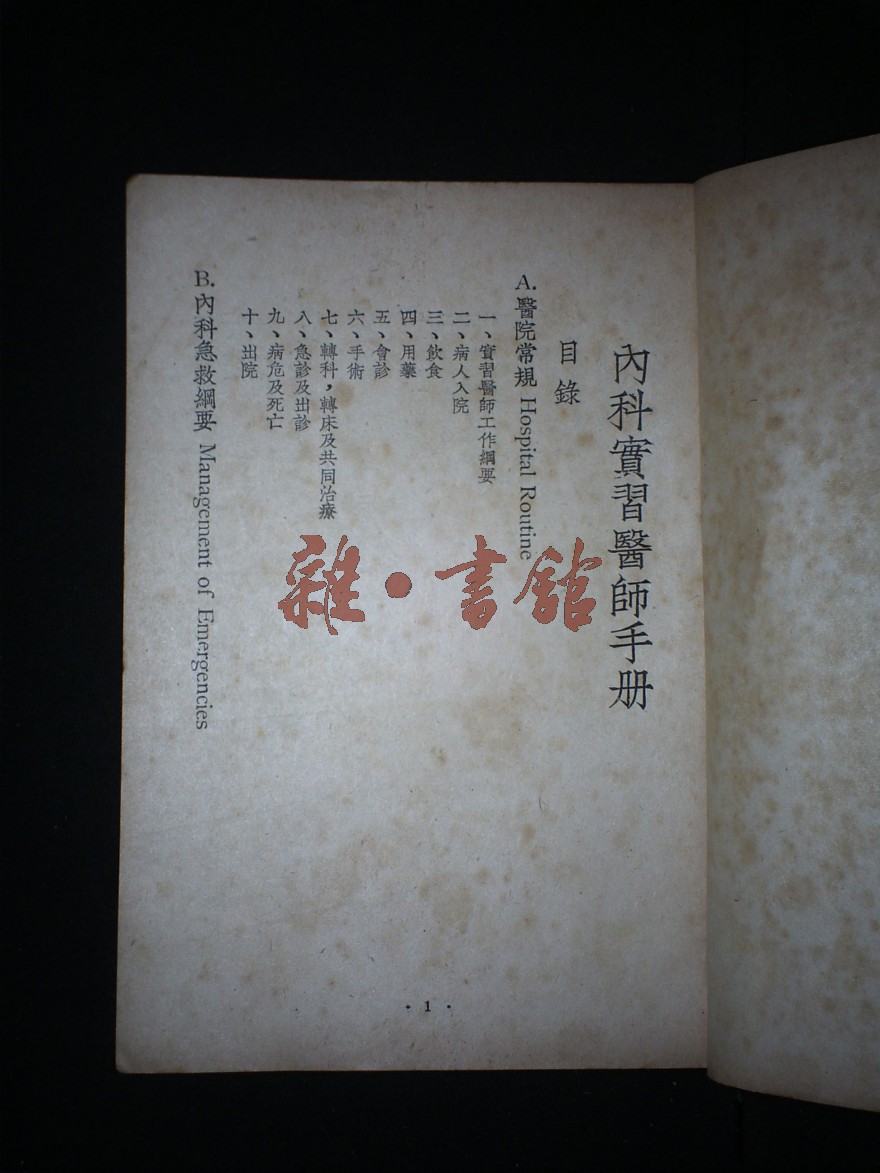 內科實習醫師手册
目錄
A. 醫院常規 Hospital Routine
一、實習醫師工作綱要
二、病人入院
三、飲食
四、用藥
五、會診
六、手術
七、轉科，轉床及共同治療
八、急診及出診
九、病危及死亡
十、出院
B. 內科急救綱要 Management of Emergencies
雜·書館
· 1 ·